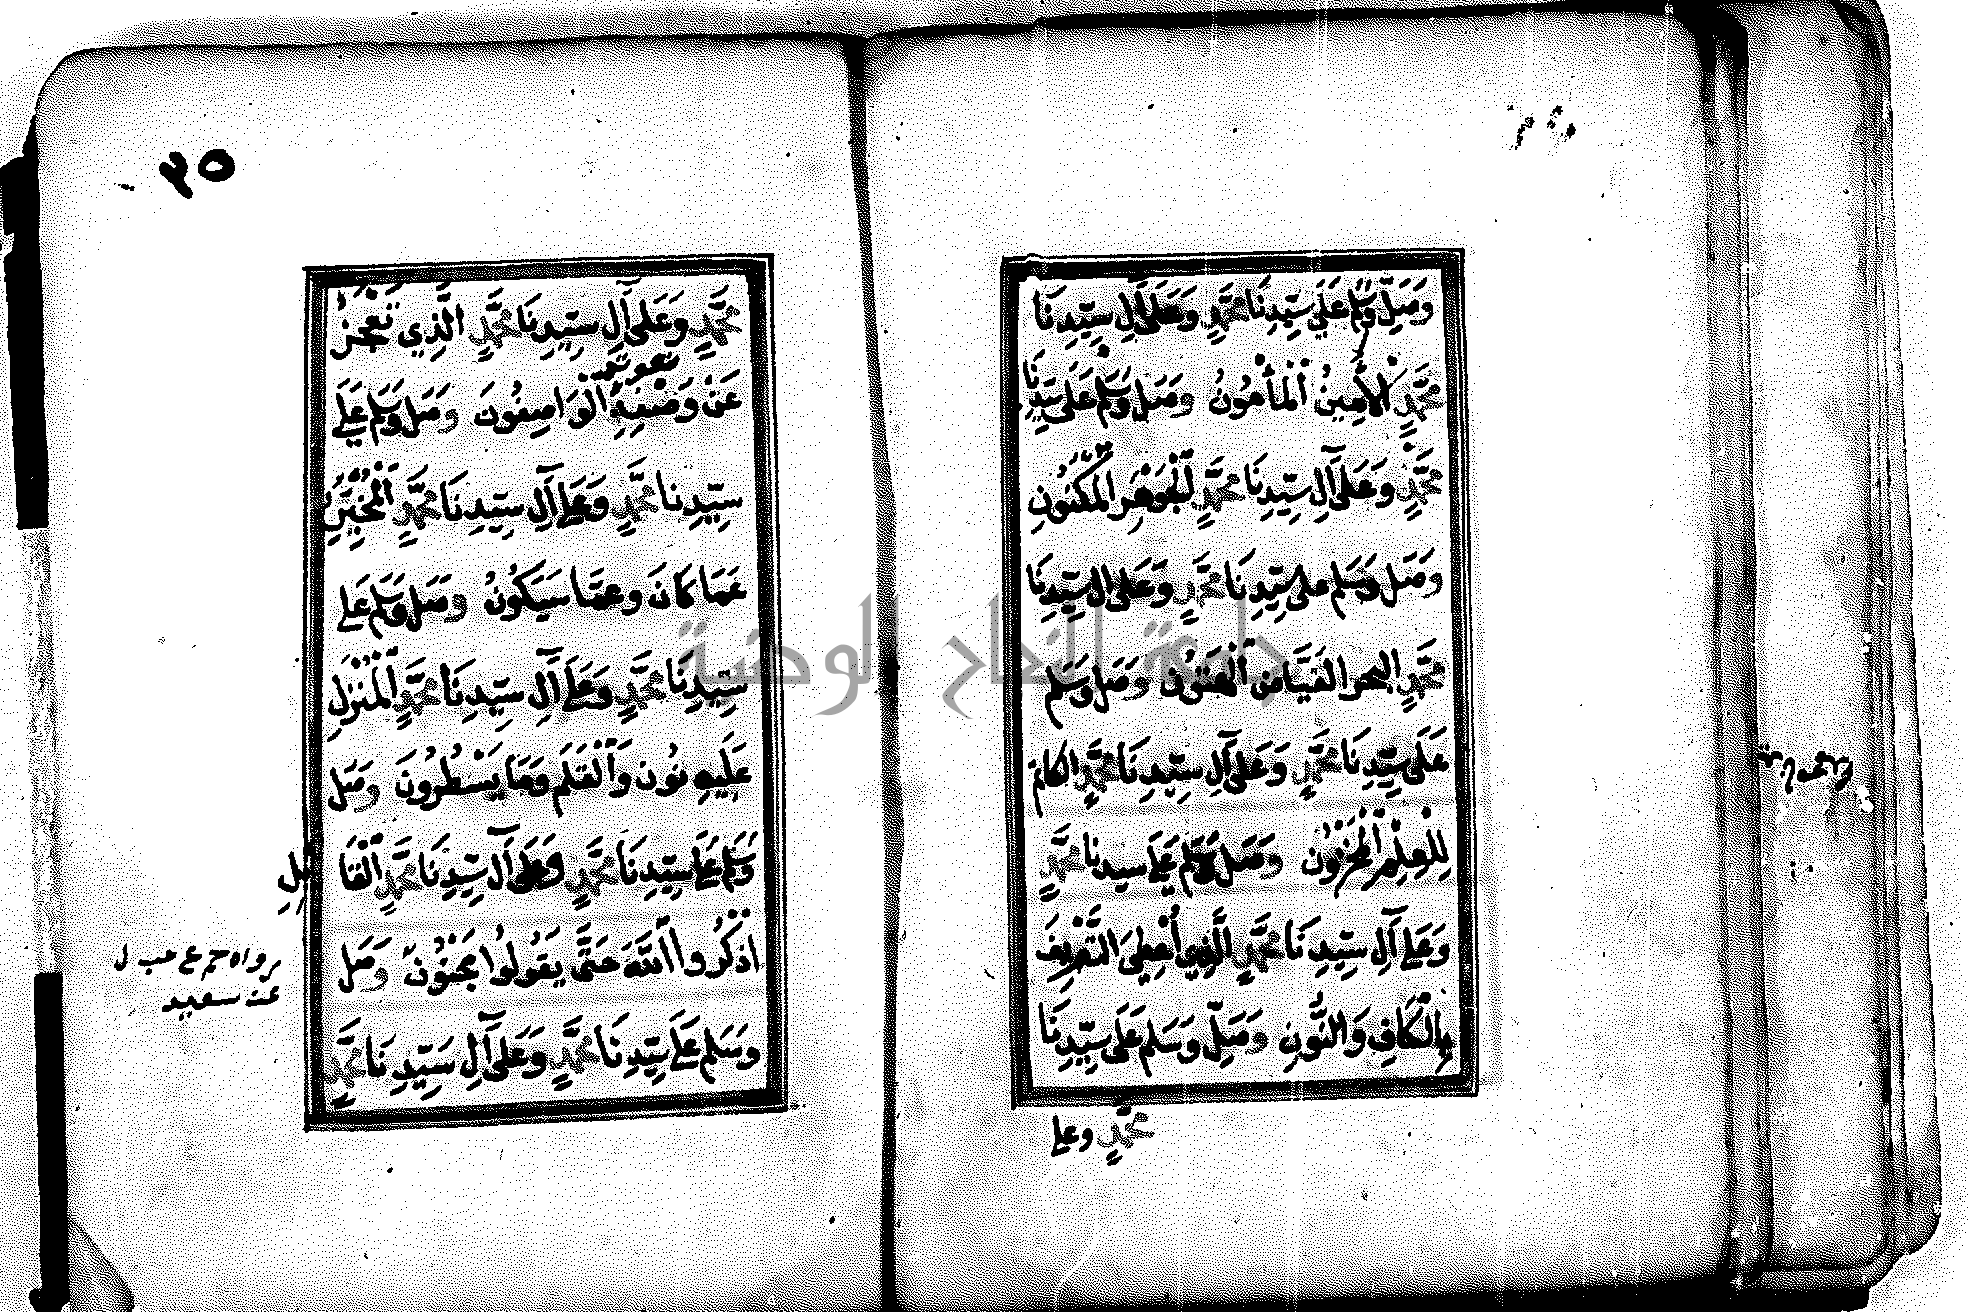 وَصَلِّ وَسَلِّمْ عَلَى سَيِّدِنَا مُحَمَّدٍ وَعَلَى آلِ سَيِّدِنَا
مُحَمَّدٍ الْأَمِينُ الْمَأْمُونُ وَصَلِ وَسَلِّمْ عَلَى سَيِّدِنَا
مُحَمَّدٍ وَعَلَى آلِ سَيِّدِنَا مُحَمَّدٍ الْجَوْهَرِ الْمَكْنُونِ
وَصَلِ وَسَلِّم عَلى سَيِّدِنَا مُحَمَّدٍ وَعَلى ال سَيِّدِنَا
مُحَمَّدٍ البحر الفَيَّاض وَصَلِ وَسَلِّم
عَلَى سَيِّدِنَا مُحَمَّدٍ وَعَلَى آلِ سَيِّدِنَا مُحَمَّدٍ الكاتم
لِلْعِلْمِ الْمَخْزُونِ وَصَلِ وَسَلِّم عَلَى سيدنَا مُحَمَّدٍ
وَعَلَى آلِ سَيِّدِنَا مُحَمَّدٍ الَّذِي أُعْطِيَ التَّصْرِيفَ
بِالْكَافِ وَالنُّونِ وَصَلِّ وَسَلِّم عَلَى سَيِّدِنَا
مُحَمَّدٍ وعلى
٢٥
مُحَمَّدٍ وَعَلَى آلِ سَيِّدِنَا مُحَمَّدٍ الَّذِي تَعْجَزُ
عَنْ وَصْفِهِ الْوَاصِفُونَ وَصَل وَسَلِّم عَلَى
سَيِّدِنا مُحَمَّدٍ وَعَلَى آلِ سَيِّدِنَا مُحَمَّدٍ الْمُخْبِرِ
عَمَّا كَانَ وعَمَّا سَيَكُونُ وَصَل وَسَلِّم عَلَى
سَيِّدِنَا مُحَمَّدٍ وَعَلَى آلِ سَيِّدِنَا مُحَمَّدٍ الْمُنْزَلِ
عَلَيهِ نُون وَالْقَلَمِ وَمَا يَسْطُرُونَ وَصَل
وَسَلِّم عَلَى سَيِّدِنَا مُحَمَّدٍ وَعَلَى آلِ سَيِّدِنَا مُحَمَّدٍ الْقَا
ئِلِ
اذْكُرُوا اللَّهَ حَتَّى يَقُولُوا مَجْنُونٌ وَصَل
رواه حم ع حب ل
عن سعيد
وَسَلِّم عَلَى سَيِّدِنَا مُحَمَّدٍ وَعَلَى آلِ سَيِّدِنَا مُحَمَّدٍ
جامعة النجاح الوطنية